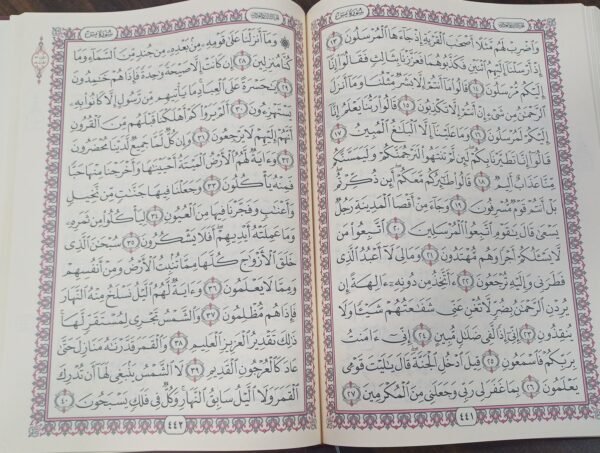 سورة يس
وَٱضۡرِبۡ لَهُم مَّثَلًا أَصۡحَٰبَ ٱلۡقَرۡيَةِ إِذۡ جَآءَهَا ٱلۡمُرۡسَلُونَ ١٣
إِذۡ أَرۡسَلۡنَآ إِلَيۡهِمُ ٱثۡنَيۡنِ فَكَذَّبُوهُمَا فَعَزَّزۡنَا بِثَالِثٖ فَقَالُوٓاْ إِنَّآ
إِلَيۡكُم مُّرۡسَلُونَ ١٤ قَالُواْ مَآ أَنتُمۡ إِلَّا بَشَرٞ مِّثۡلُنَا وَمَآ أَنزَلَ
ٱلرَّحۡمَٰنُ مِن شَيۡءٍ إِنۡ أَنتُمۡ إِلَّا تَكۡذِبُونَ ١٥ قَالُواْ رَبُّنَا يَعۡلَمُ إِنَّآ
إِلَيۡكُمۡ لَمُرۡسَلُونَ ١٦ وَمَا عَلَيۡنَآ إِلَّا ٱلۡبَلَٰغُ ٱلۡمُبِينُ ١٧
قَالُوٓاْ إِنَّا تَطَيَّرۡنَا بِكُمۡۖ لَئِن لَّمۡ تَنتَهُواْ لَنَرۡجُمَنَّكُمۡ وَلَيَمَسَّنَّكُم
مِّنَّا عَذَابٌ أَلِيمٞ ١٨ قَالُواْ طَٰٓئِرُكُم مَّعَكُمۡ أَئِن ذُكِّرۡتُمۚ
بَلۡ أَنتُمۡ قَوۡمٞ مُّسۡرِفُونَ ١٩ وَجَآءَ مِنۡ أَقۡصَا ٱلۡمَدِينَةِ رَجُلٞ
يَسۡعَىٰ قَالَ يَٰقَوۡمِ ٱتَّبِعُواْ ٱلۡمُرۡسَلِينَ ٢٠ ٱتَّبِعُواْ مَن
لَّا يَسۡـَٔلُكُمۡ أَجۡرٗا وَهُم مُّهۡتَدُونَ ٢١ وَمَالِيَ لَآ أَعۡبُدُ ٱلَّذِي
فَطَرَنِي وَإِلَيۡهِ تُرۡجَعُونَ ٢٢ ءَأَتَّخِذُ مِن دُونِهِۦٓ ءَالِهَةً إِن
يُرِدۡنِ ٱلرَّحۡمَٰنُ بِضُرّٖ لَّا تُغۡنِ عَنِّي شَفَٰعَتُهُمۡ شَيۡـٔٗا وَلَا
يُنقِذُونِ ٢٣ إِنِّيٓ إِذٗا لَّفِي ضَلَٰلٖ مُّبِينٍ ٢٤ إِنِّيٓ ءَامَنتُ
بِرَبِّكُمۡ فَٱسۡمَعُونِ ٢٥ قِيلَ ٱدۡخُلِ ٱلۡجَنَّةَۖ قَالَ يَٰلَيۡتَ قَوۡمِي
يَعۡلَمُونَ ٢٦ بِمَا غَفَرَ لِي رَبِّي وَجَعَلَنِي مِنَ ٱلۡمُكۡرَمِينَ ٢٧
٤٤١
سورة يس
۞ وَمَآ أَنزَلۡنَا عَلَىٰ قَوۡمِهِۦ مِنۢ بَعۡدِهِۦ مِن جُندٖ مِّنَ ٱلسَّمَآءِ وَمَا
كُنَّا مُنزِلِينَ ٢٨ إِن كَانَتۡ إِلَّا صَيۡحَةٗ وَٰحِدَةٗ فَإِذَا هُمۡ خَٰمِدُونَ
٢٩ يَٰحَسۡرَةً عَلَى ٱلۡعِبَادِۚ مَا يَأۡتِيهِم مِّن رَّسُولٍ إِلَّا كَانُواْ بِهِۦ
يَسۡتَهۡزِءُونَ ٣٠ أَلَمۡ يَرَوۡاْ كَمۡ أَهۡلَكۡنَا قَبۡلَهُم مِّنَ ٱلۡقُرُونِ
أَنَّهُمۡ إِلَيۡهِمۡ لَا يَرۡجِعُونَ ٣١ وَإِن كُلّٞ لَّمَّا جَمِيعٞ لَّدَيۡنَا مُحۡضَرُونَ
٣٢ وَءَايَةٞ لَّهُمُ ٱلۡأَرۡضُ ٱلۡمَيۡتَةُ أَحۡيَيۡنَٰهَا وَأَخۡرَجۡنَا مِنۡهَا حَبّٗا
فَمِنۡهُ يَأۡكُلُونَ ٣٣ وَجَعَلۡنَا فِيهَا جَنَّٰتٖ مِّن نَّخِيلٖ
وَأَعۡنَٰبٖ وَفَجَّرۡنَا فِيهَا مِنَ ٱلۡعُيُونِ ٣٤ لِيَأۡكُلُواْ مِن ثَمَرِهِۦ
وَمَا عَمِلَتۡهُ أَيۡدِيهِمۡۚ أَفَلَا يَشۡكُرُونَ ٣٥ سُبۡحَٰنَ ٱلَّذِي
خَلَقَ ٱلۡأَزۡوَٰجَ كُلَّهَا مِمَّا تُنۢبِتُ ٱلۡأَرۡضُ وَمِنۡ أَنفُسِهِمۡ
وَمِمَّا لَا يَعۡلَمُونَ ٣٦ وَءَايَةٞ لَّهُمُ ٱلَّيۡلُ نَسۡلَخُ مِنۡهُ ٱلنَّهَارَ
فَإِذَا هُم مُّظۡلِمُونَ ٣٧ وَٱلشَّمۡسُ تَجۡرِي لِمُسۡتَقَرّٖ لَّهَاۚ
ذَٰلِكَ تَقۡدِيرُ ٱلۡعَزِيزِ ٱلۡعَلِيمِ ٣٨ وَٱلۡقَمَرَ قَدَّرۡنَٰهُ مَنَازِلَ حَتَّىٰ
عَادَ كَٱلۡعُرۡجُونِ ٱلۡقَدِيمِ ٣٩ لَا ٱلشَّمۡسُ يَنۢبَغِي لَهَآ أَن تُدۡرِكَ
ٱلۡقَمَرَ وَلَا ٱلَّيۡلُ سَابِقُ ٱلنَّهَارِۚ وَكُلّٞ فِي فَلَكٖ يَسۡبَحُونَ ٤٠
٤٤٢